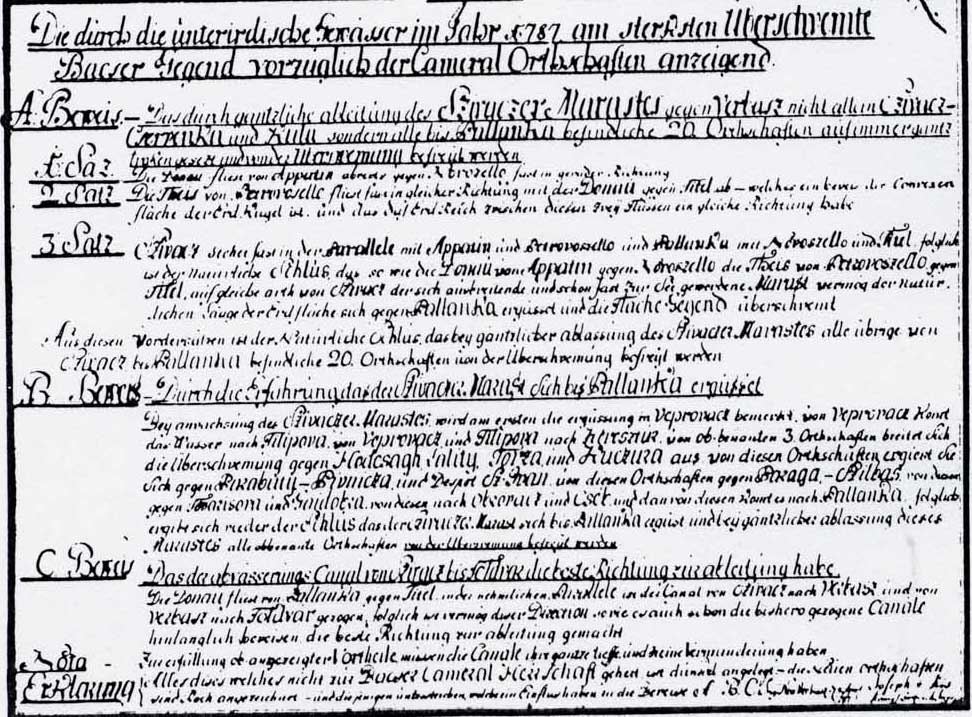 Die durch die ünterirdische Gewässer im Jahr 1787 am sterksten Uberschwemte
Bacser Gegend vorzüglich der Cameral Orthschaften anzeigend.
A. Beweis. – Das durch gantzliche ableitung des Szivaczer Morastes gegen Verbasz nicht allein Szivacz-
Czervenka und Kula sondern alle bis Pallanka befindliche 20 Orthschaften auf immer gantz
und von der Uberschwemung befreyt werden
1. Saz. Die Donau fliest von Appatin abwerts gegen Novoszello fast in gerader Richtung
2 Satz Die Theis von Petrovoszello fliest fast in gleicher Richtung mit der Donau gegen Titel ab – welches ein beweis der Convexen
fläche der Erd Kugel ist. und das das Erd Reich zwischen diesen zwey Flüssen ein gleiche Richtung habe
3 Satz Szivacz stehet fast in der Parallele mit Appatin und Petrovoszello und Pallanka mit Novoszello und Titel. folglich
ist der Natürliche Schlus, das so wie die Donau von Appatin gegen Novoszello die Theis von Petrovoszello gegen
Titel, auf gleiche arth von Szivacz der sich ausbreitende und schon fast zur See gewordene Morast vermög der Natur-
lichen Lage der Erdfläche sich gegen Pallanka ergiesset und die flache Gegend überschwemt
Aus diesen Vordersätzen ist der Natürliche Schlus, das bey gäntzlicher ablassung des Szivaczer Morastes alle übrige von
Szivacz bis Pallanka befindliche 20. Orthschaften von der Uberschwemung befreyt werden
B Beweis – Durch die Erfahrung das der Szivaczer Morast sich bis Pallanka ergiesset
Bey anwachsung des Szivaczer Morastes, wird am ersten die ergissung in Veprovacz bemerkt, von Veprovacz Komt
das Wasser nach Filipova, von Veprovacz und Filipova nach Keresztur, von ob-benanten 3. Orthschaften breitet sich
die Uberschwemung gegen Hodcsagh, Lality, Torza, und Kuczura aus von diesen Orthschaften ergiest sie
sich gegen Parabuty – Pivnicza, und Despot Sz-Ivan, von diesen Orthschaften gegen Paraga, – Szilbas, von diesen
gegen Tovarisova und, von diesen nach Obrovacz und und dan von diesen Komt es nach Pallanka, folglich
ergibt sich wieder der Schlus das der Szivaczer Morast sich bis Pallanka ergiest und bey gäntzlicher ablassung dieses
Morastes alle obbenante Orthschaften von der Uberschwemung befreyt werden
C Beweis Das der abwasserungs Canal von Szivacz bis Földvar die beste Richtung zur ableitung habe.
Die Donau fliest von Pallanka gegen Titel, in der nehmlichen Parallele ist der Canal von Szivacz nach Verbasz und von
Verbasz nach Földvár gezogen, folglich ist vermög dieser Direction so wie es auch schon die bishero gezogene Canale
hinlänglich beweisen, die beste Richtung zur ableitung gemacht
Nota – Zur erfüllung ob angezeigter Vortheile müssen die Canale ihre gantze tieffe und keine verminderung haben
Erklärung Alles dises welches nicht zur Bacser Cameral Herrschaft gehört ist dünner angelegt – die
sind und diejenigen unterstrichen, welche ein Einflus haben in die Beweise A. B. C. Joseph